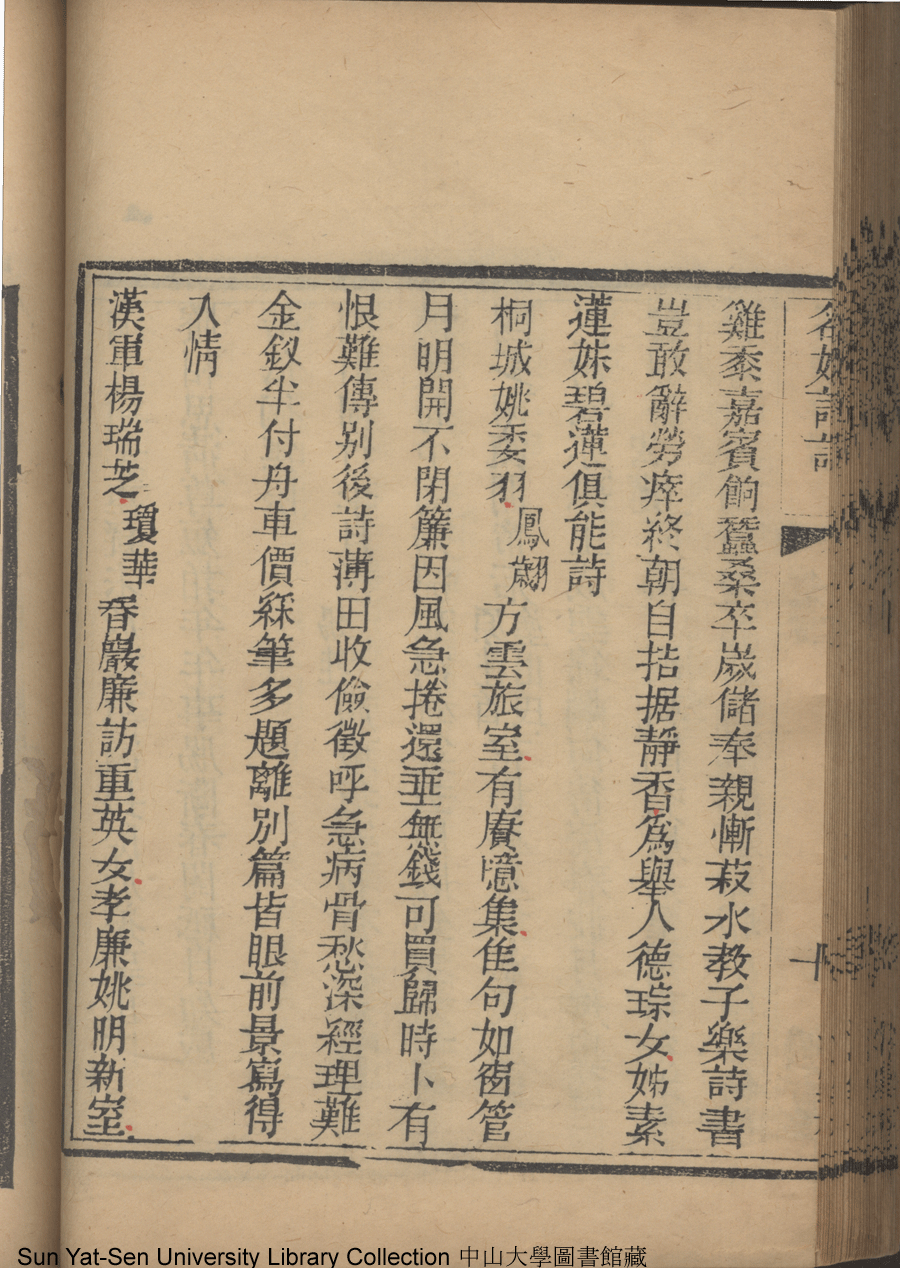 名媛詩話
十
雞黍嘉賓餉蠶桑卒歲儲奉親慚菽水教子樂詩書
豈敢辭勞瘁終朝自拮据靜香為舉人德琮女姊素
蓮妹碧蓮俱能詩
桐城姚委羽鳳翽方雲旅室有賡噫集佳句如窗管
月明開不閉簾因風急捲還垂無錢可買歸時卜有
恨難傳別後詩薄田收儉徵呼急病骨愁深經理難
金釵半付舟車價綵筆多題離別篇皆眼前景寫得
入情
漢軍楊瑞芝瓊華春巖廉訪重英女孝廉姚明新室
Sun Yat-Sen University Library Collection 中山大學圖書館藏